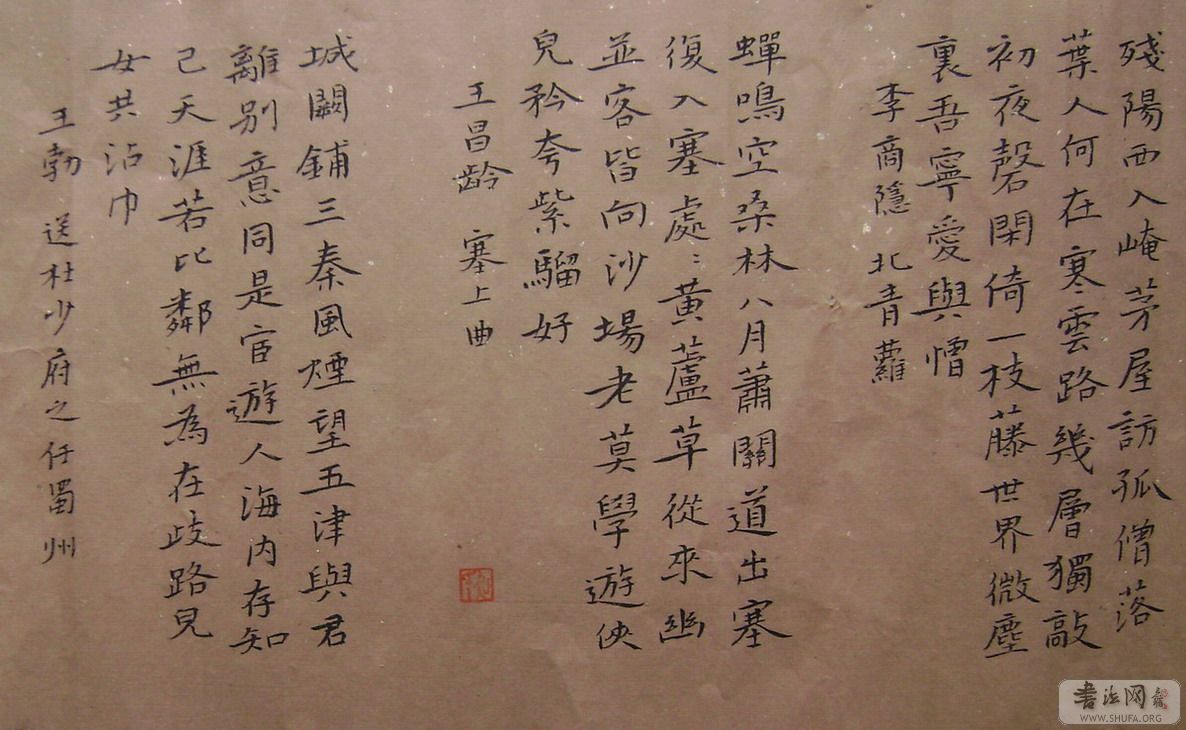 殘陽西入崦茅屋訪孤僧落
葉人何在寒雲路幾層獨敲
初夜磬閑倚一枝藤世界微塵
裏吾寧愛與憎
李商隱 北青蘿
蟬鳴空桑林八月蕭關道出塞
復入塞處〻黃蘆草從來幽
並客皆向沙場老莫學遊俠
兒矜夸紫騮好
王昌齡 塞上曲
城闕鋪三秦風煙望五津與君
離別意同是宦遊人海內存知
己天涯若比鄰無為在歧路兒
女共沾巾
王勃 送杜少府之任蜀州
書法网
WWW.SHUFA.ORG